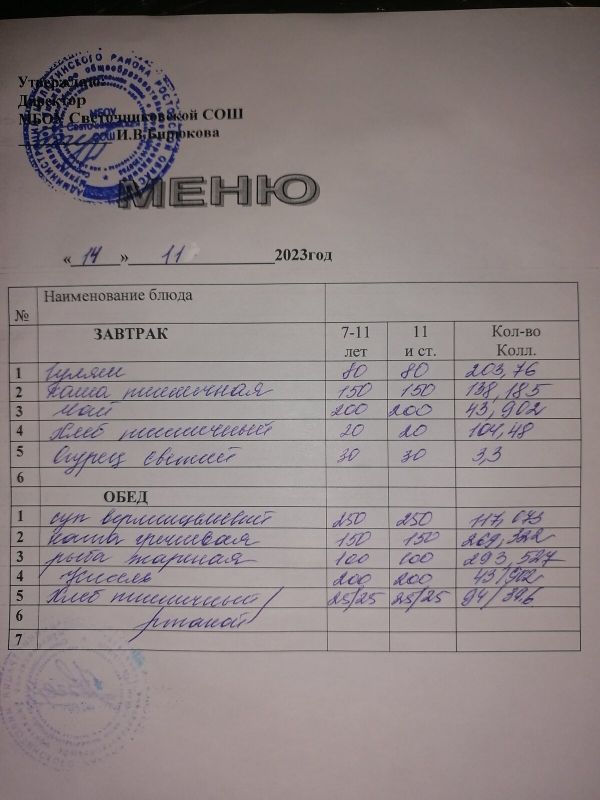 Утверждаю:
Директор
МБОУ Светочниковской СОШ
И.В.Бирюкова
МЕНЮ
« 14 » 11 2023год
№ Наименование блюда
ЗАВТРАК 7-11 лет 11 и ст. Кол-во Колл.
1 Гуляш 80 80 203,76
2 Каша пшеничная 150 150 138,185
3 Чай 200 200 43,902
4 Хлеб пшеничный 20 20 104,48
5 Огурец свежий 30 30 3,3
6
ОБЕД
1 суп вермишелевый 250 250 117,673
2 Каша гречневая 150 150 269,322
3 рыба жареная 100 100 293,527
4 Кисель 200 200 43,902
5 Хлеб пшеничный/ 25/25 25/25 94/89,6
6 ржаной
7